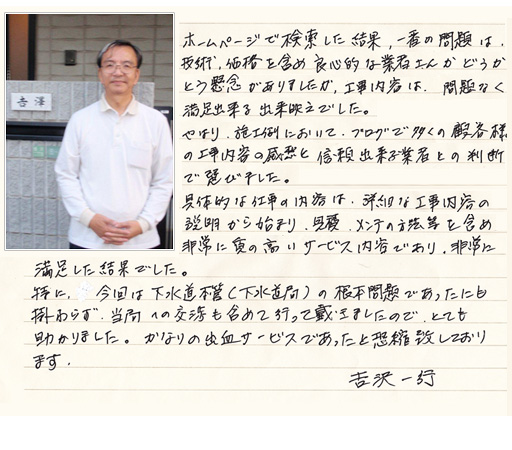 吉澤
ホームページで検索した結果、一番の問題は、
技術、価格を含め良心的な業者さんかどうか
という懸念がありましたが、工事内容は、問題なく
満足出来る出来映えでした。
やはり、施工例において、ブログで多くの顧客様
の工事内容の感想と信頼出来る業者との判断
で選びました。
具体的な仕事の内容は、詳細な工事内容の
説明から始まり、見積、メンテの方法等を含め
非常に質の高いサービス内容であり、非常に
満足した結果でした。
特に、今回は下水道本管(下水道局)の根本問題であったにも
掛わらず、当局への交渉も含めて行って戴きましたので、とても
助かりました。かなりの出血サービスであったと恐縮致しており
ます.
吉沢一行